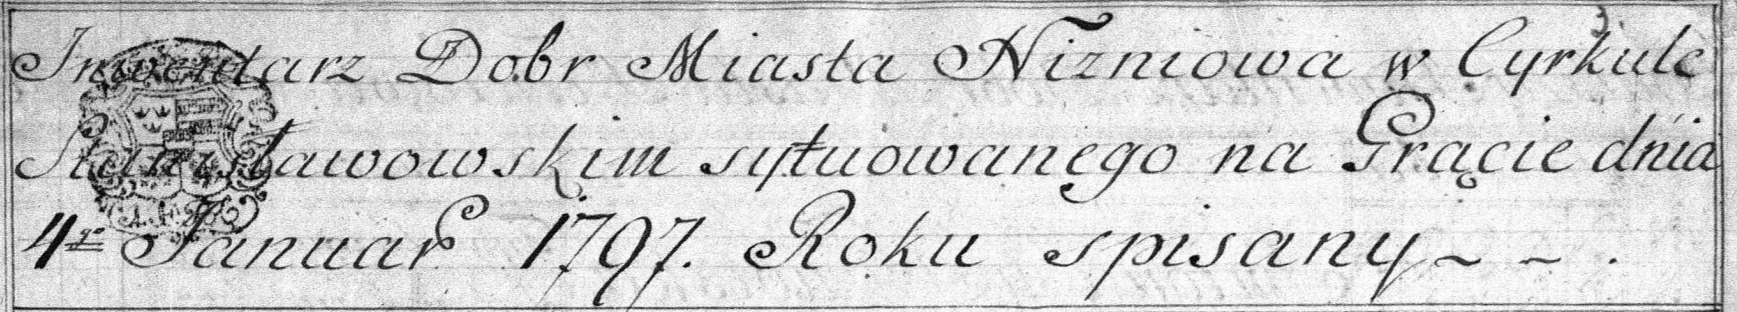 Inwentarz Dobr Miasta Nizniowa w Cyrkule
Stanisławowskim sytuowanego na Grącie dnia
4go Januar 1797. Roku spisany ~ ~ .